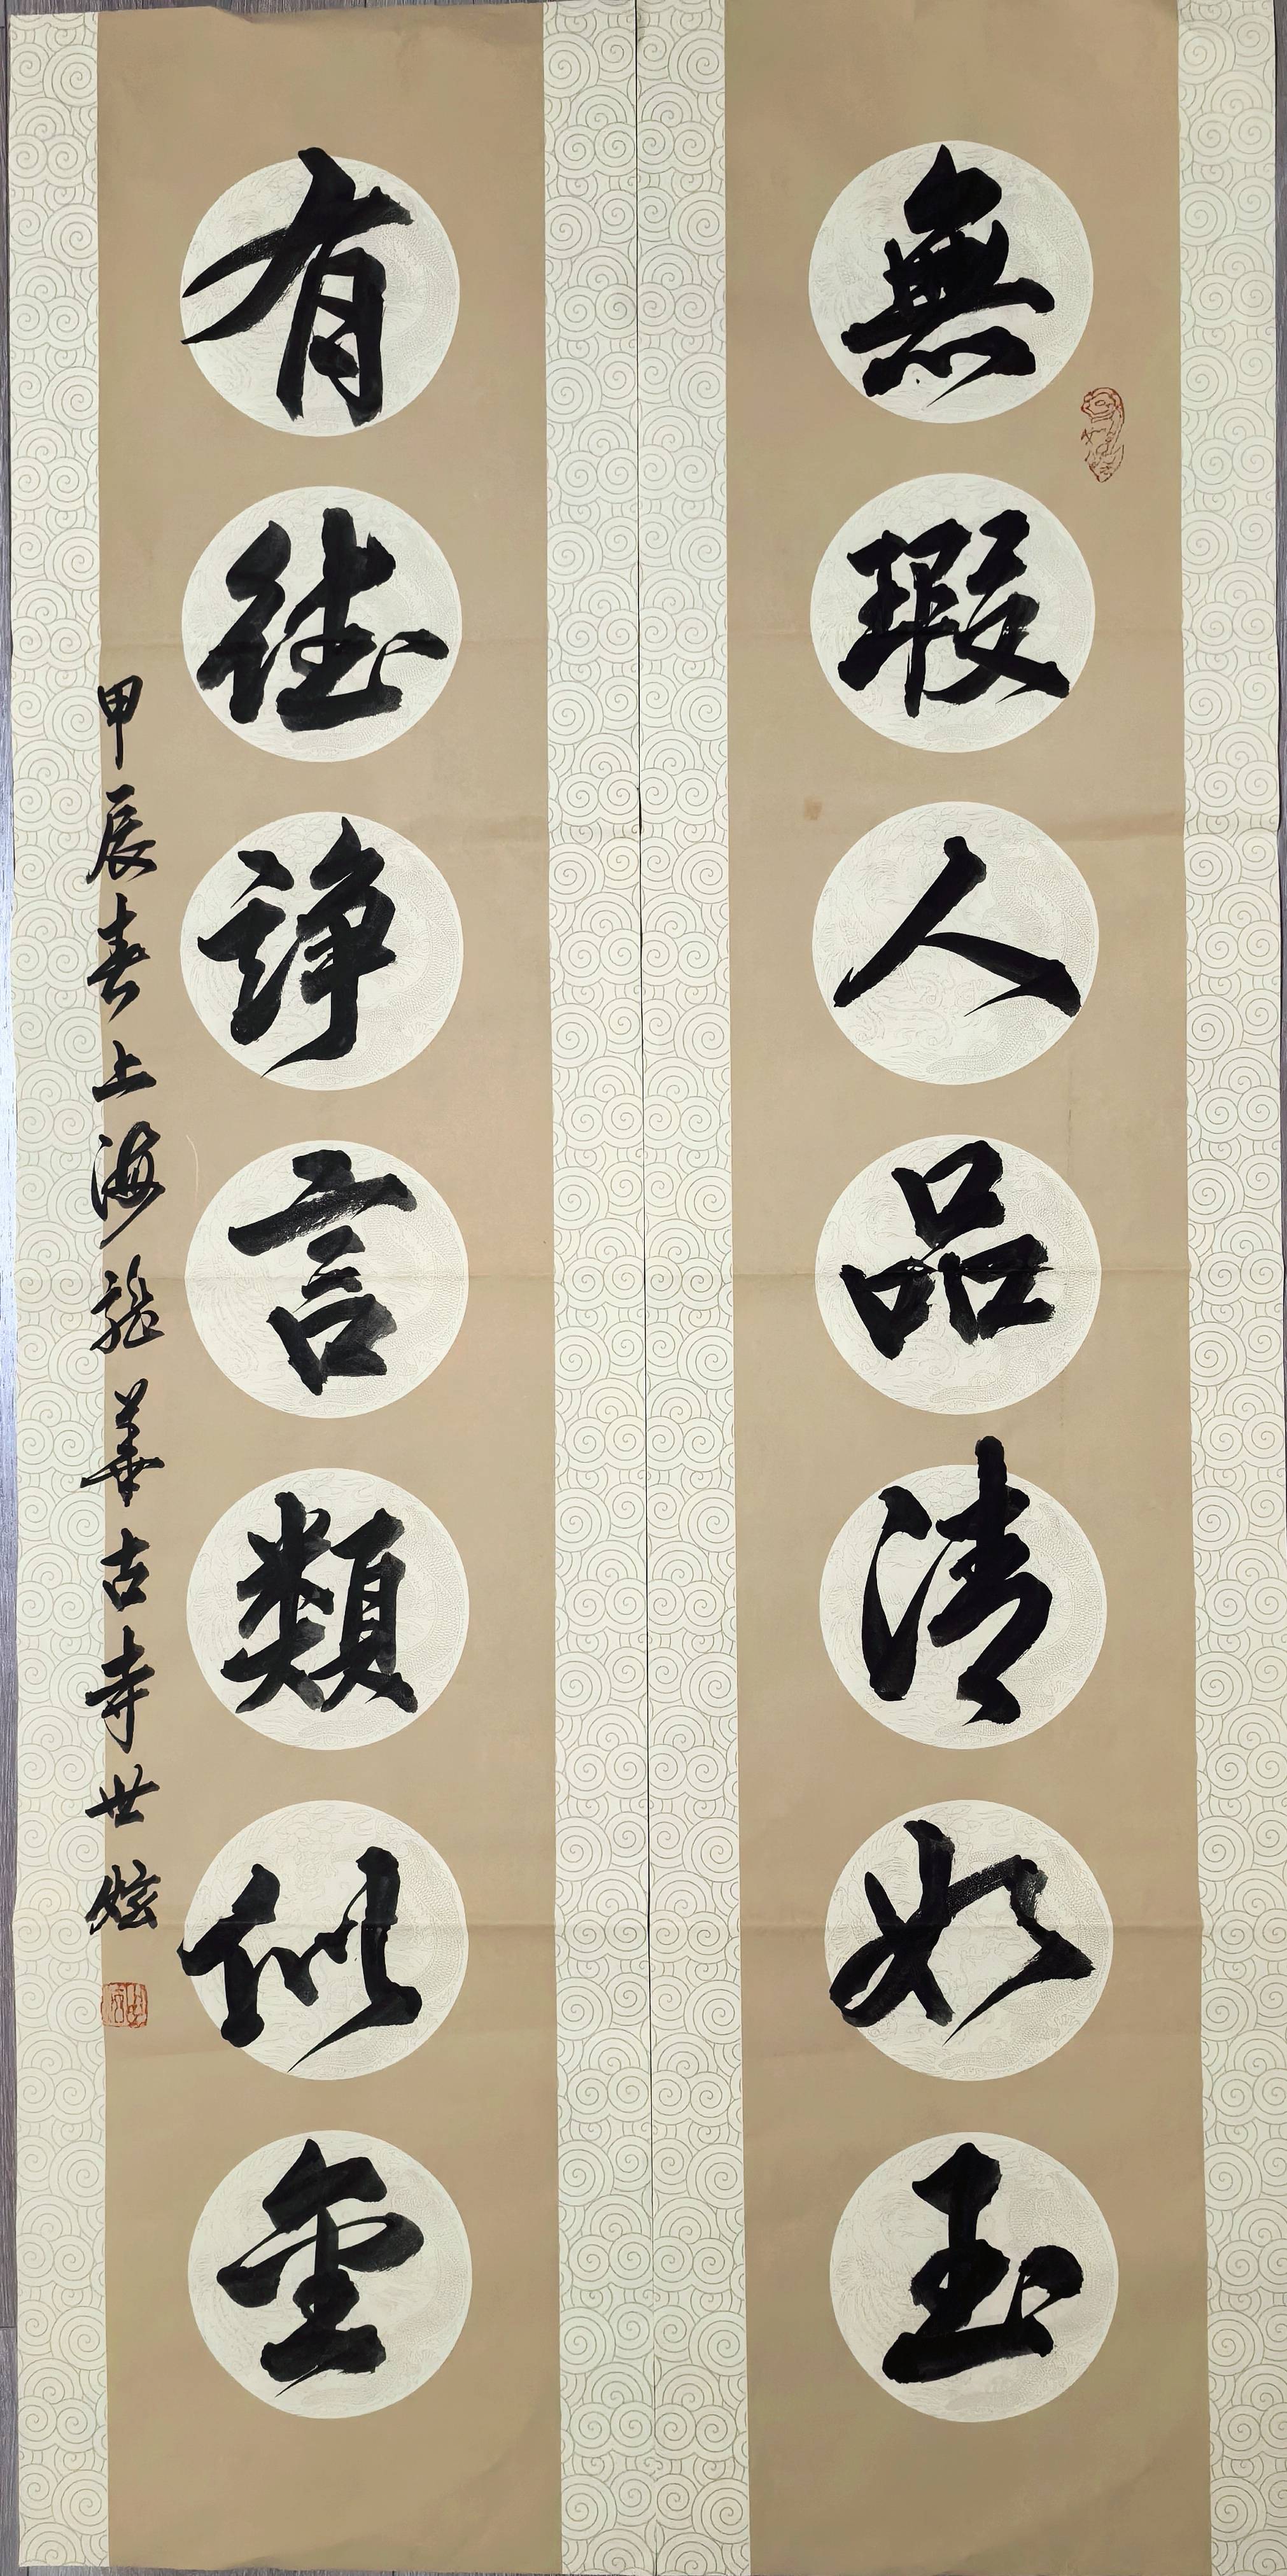 無瑕人品清如玉
有德諍言類似金
甲辰春上海龍華古寺世炫